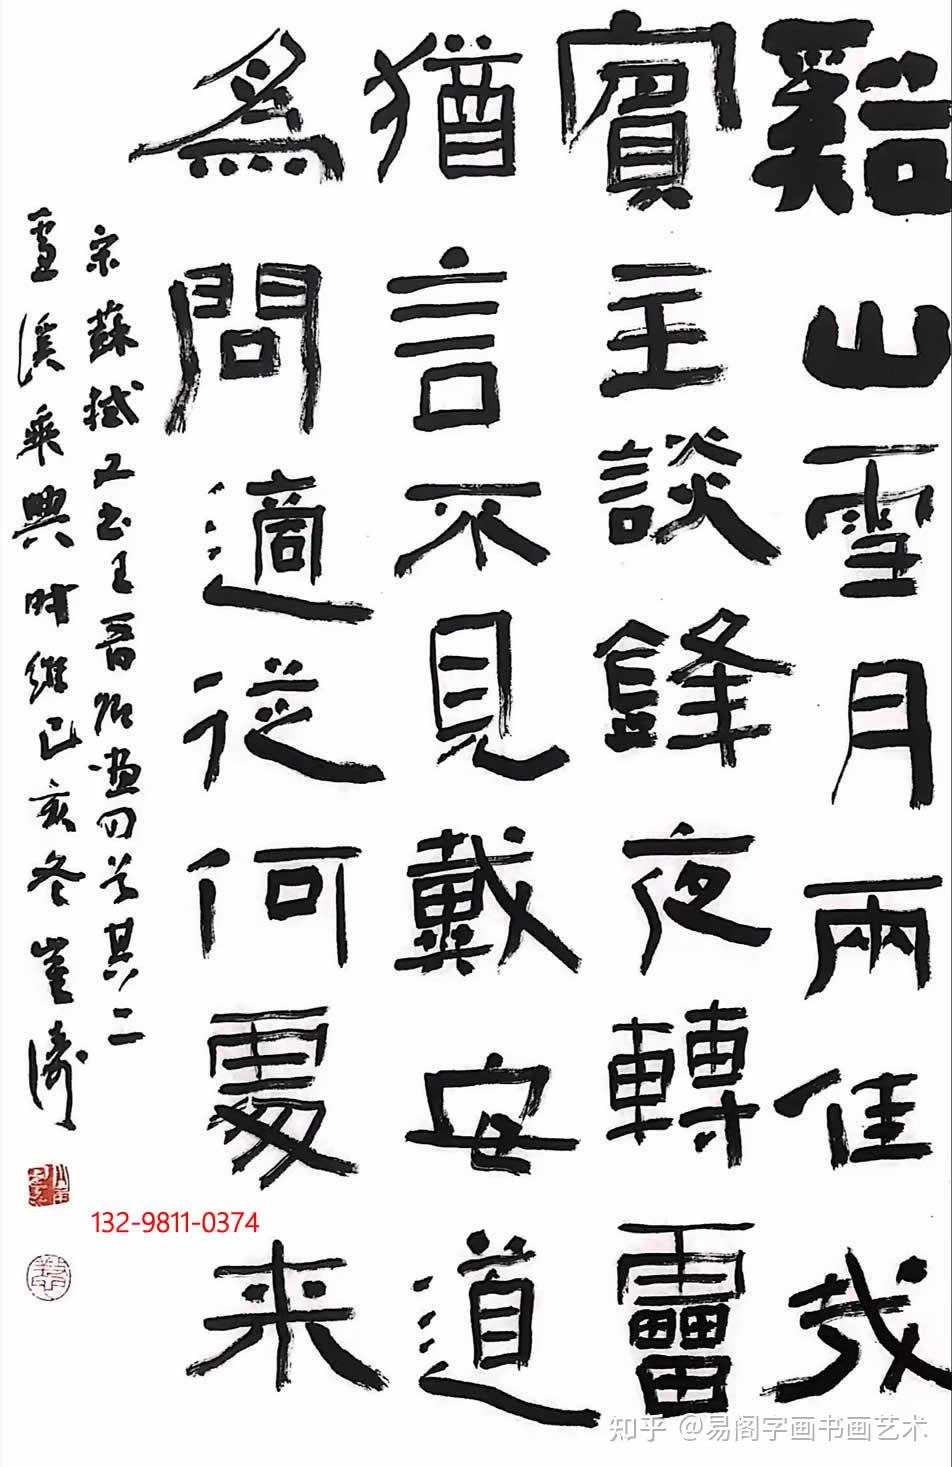 谿山雪月兩佳哉
賓主談鋒夜轉雷
猶言不見戴安道
為問適從何處来
宋蘇軾又书王晋卿畫四首其二
雪溪乘興时維己亥冬崔濤
132-9811-0374
知乎 @易阁字画书画艺术